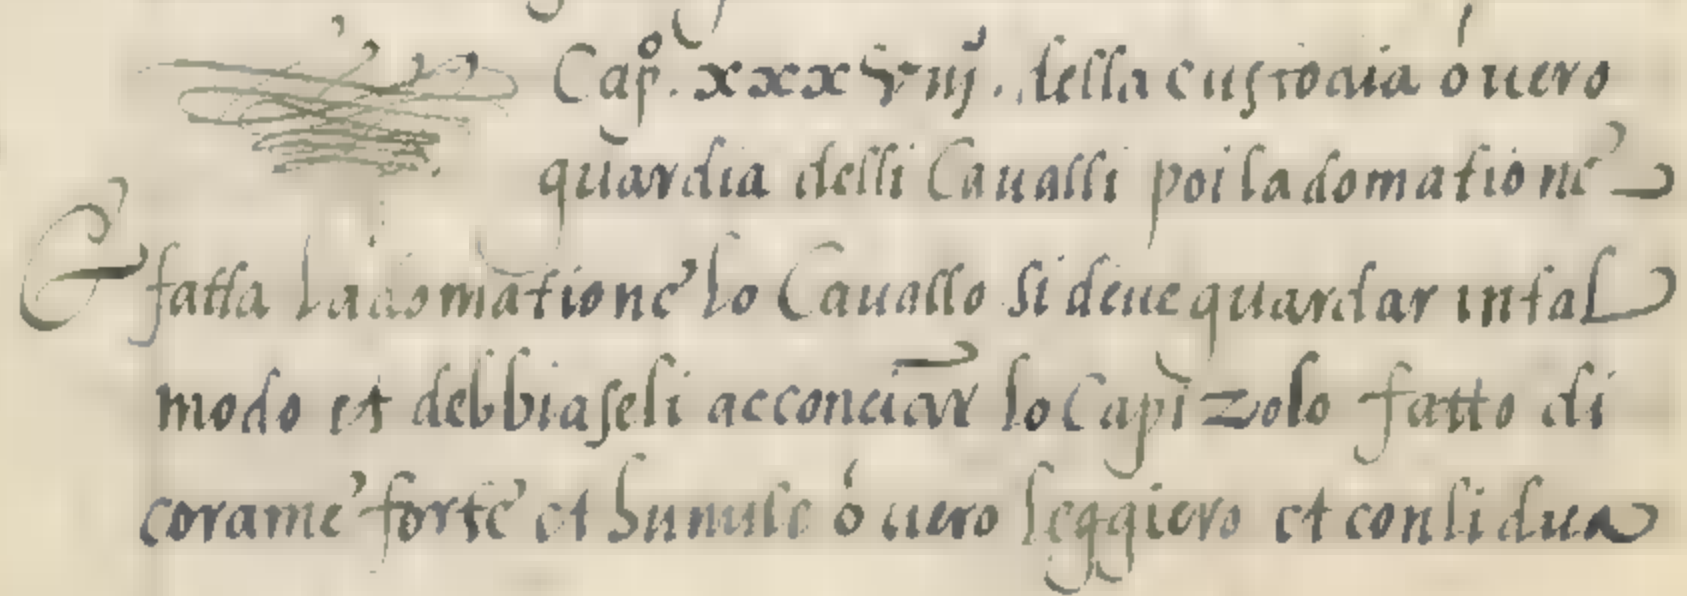 Capº. xxxviij. della custodia ó uero
guardia delli Caualli poi la domatione
Et fatta la domatione lo Cauallo si deue guardar in tal
modo et debbiaseli acconciar lo Capizolo fatto di
corame forte et humile ó uero leggiero et con li dua